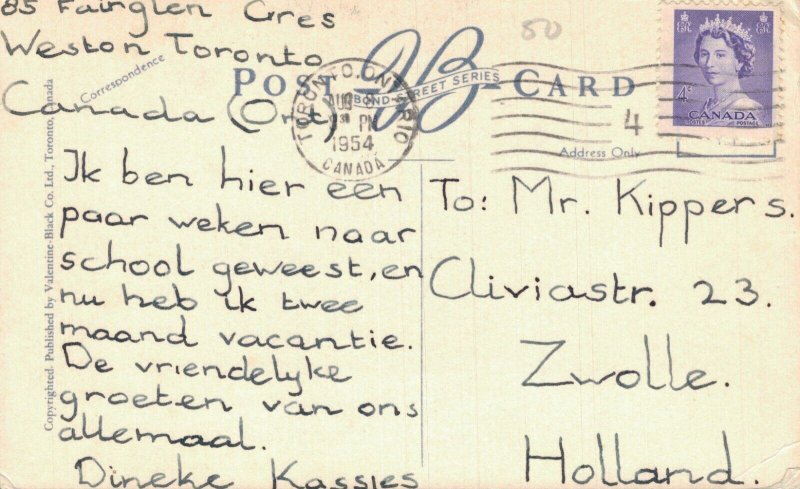 85 Fairglen Cres
Weston Toronto
Canada (Ont)
Correspondence
POST CARD
BOND STREET SERIES
TORONTO, ONTARIO
AUG
PM
1954
CANADA
50
4
4¢
CANADA
POSTES POSTAGE
Address Only
Copyrighted. Published by Valentine-Black Co. Ltd., Toronto, Canada
Ik ben hier een
paar weken naar
school geweest, en
nu heb ik twee
maand vacantie.
De vriendelyke
groeten van ons
allemaal.
Dineke Kassies
To: Mr. Kippers.
Cliviastr. 23.
Zwolle.
Holland.